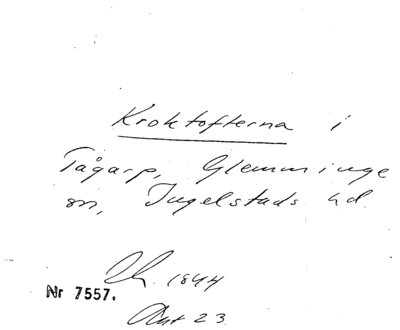 Kroktofterna i
Tågarp, Glemminge
sn, Ingelstads hd.
1844
Nr 7557.
Akt 23.